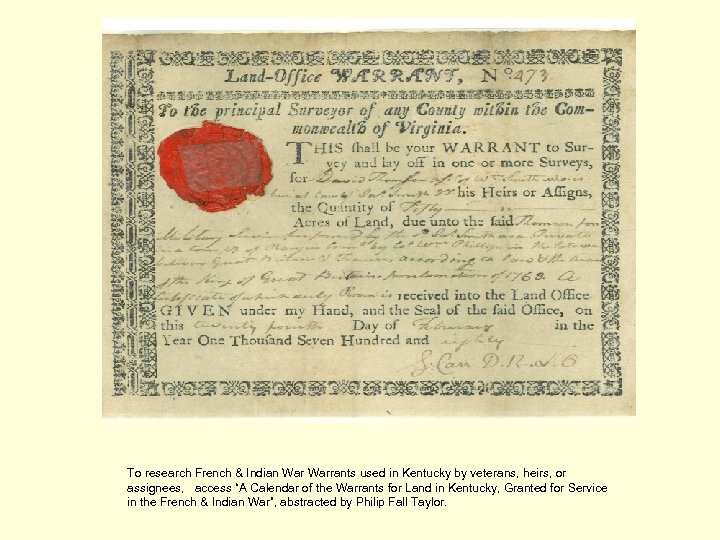 Land-Office WARRANT, No. 473
To the principal Surveyor of any County within the Com-
monwealth of Virginia.
THIS shall be your WARRANT to Sur-
vey and lay off in one or more Surveys,
for David
his Heirs or Assigns,
the Quantity of Fifty
Acres of Land, due unto the said
Military by the
by Col Wm
Great Britain & France, according to
of the King of Great Britains proclamation of 1763. A
Certificate of which is received into the Land Office
GIVEN under my Hand, and the Seal of the said Office, on
this twenty fourth Day of February in the
Year One Thousand Seven Hundred and eighty
Carr D. R. L. O
To research French & Indian War Warrants used in Kentucky by veterans, heirs, or
assignees, access “A Calendar of the Warrants for Land in Kentucky, Granted for Service
in the French & Indian War”, abstracted by Philip Fall Taylor.